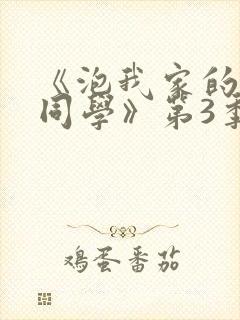 《泡我家的
同學》第3季
鸡蛋番茄